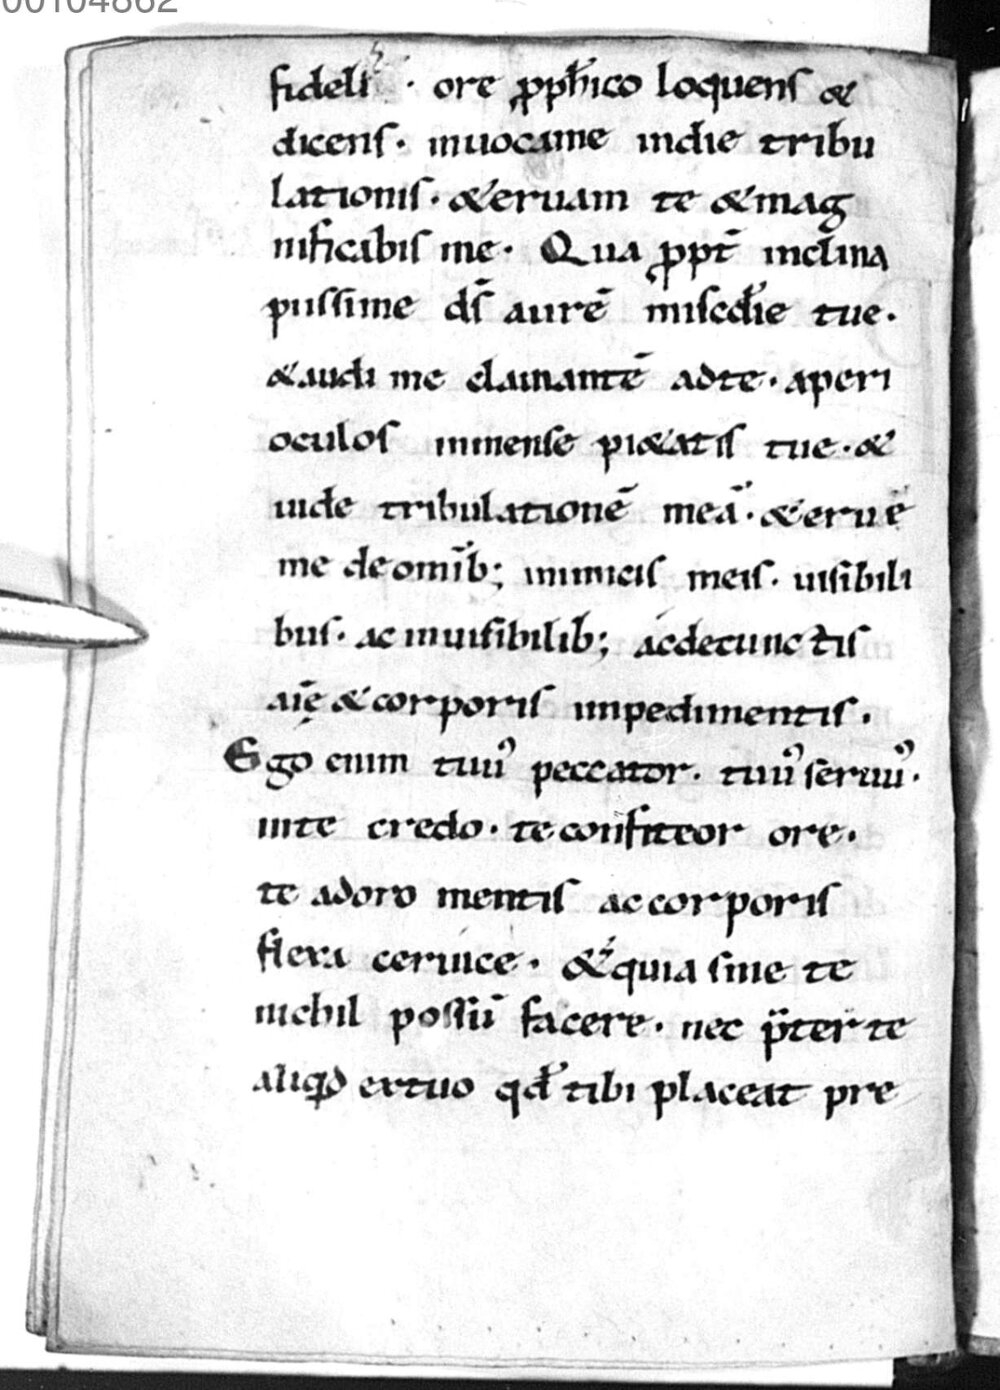 00104862
fideliˢ · ore ꝓph̄ico loquens &
dicens · inuocame indie tribu
lationis · &eruam te &mag
nificabis me · Qua ꝓpt̄ inclina
piissime d̄s aurē mis̄cdie tue ·
&audi me clamantē adte · aperi
oculos inmense pi&atis tue · &
uide tribulationē meā · &erue
me deomīb; inimicis meis · uisibili
bus · ac inuisibilib; acdecunctis
aīę &corporis inpedimentis ·
Ego enim tuuꝰ peccator · tuuꝰ seruuꝰ ·
inte credo · teconfiteor ore ·
te adoro mentis accorporis
flexa ceruice · &quia sine te
nichil possū facere · nec p̄ter te
aliqd extuo qd̄ tibi placeat pre